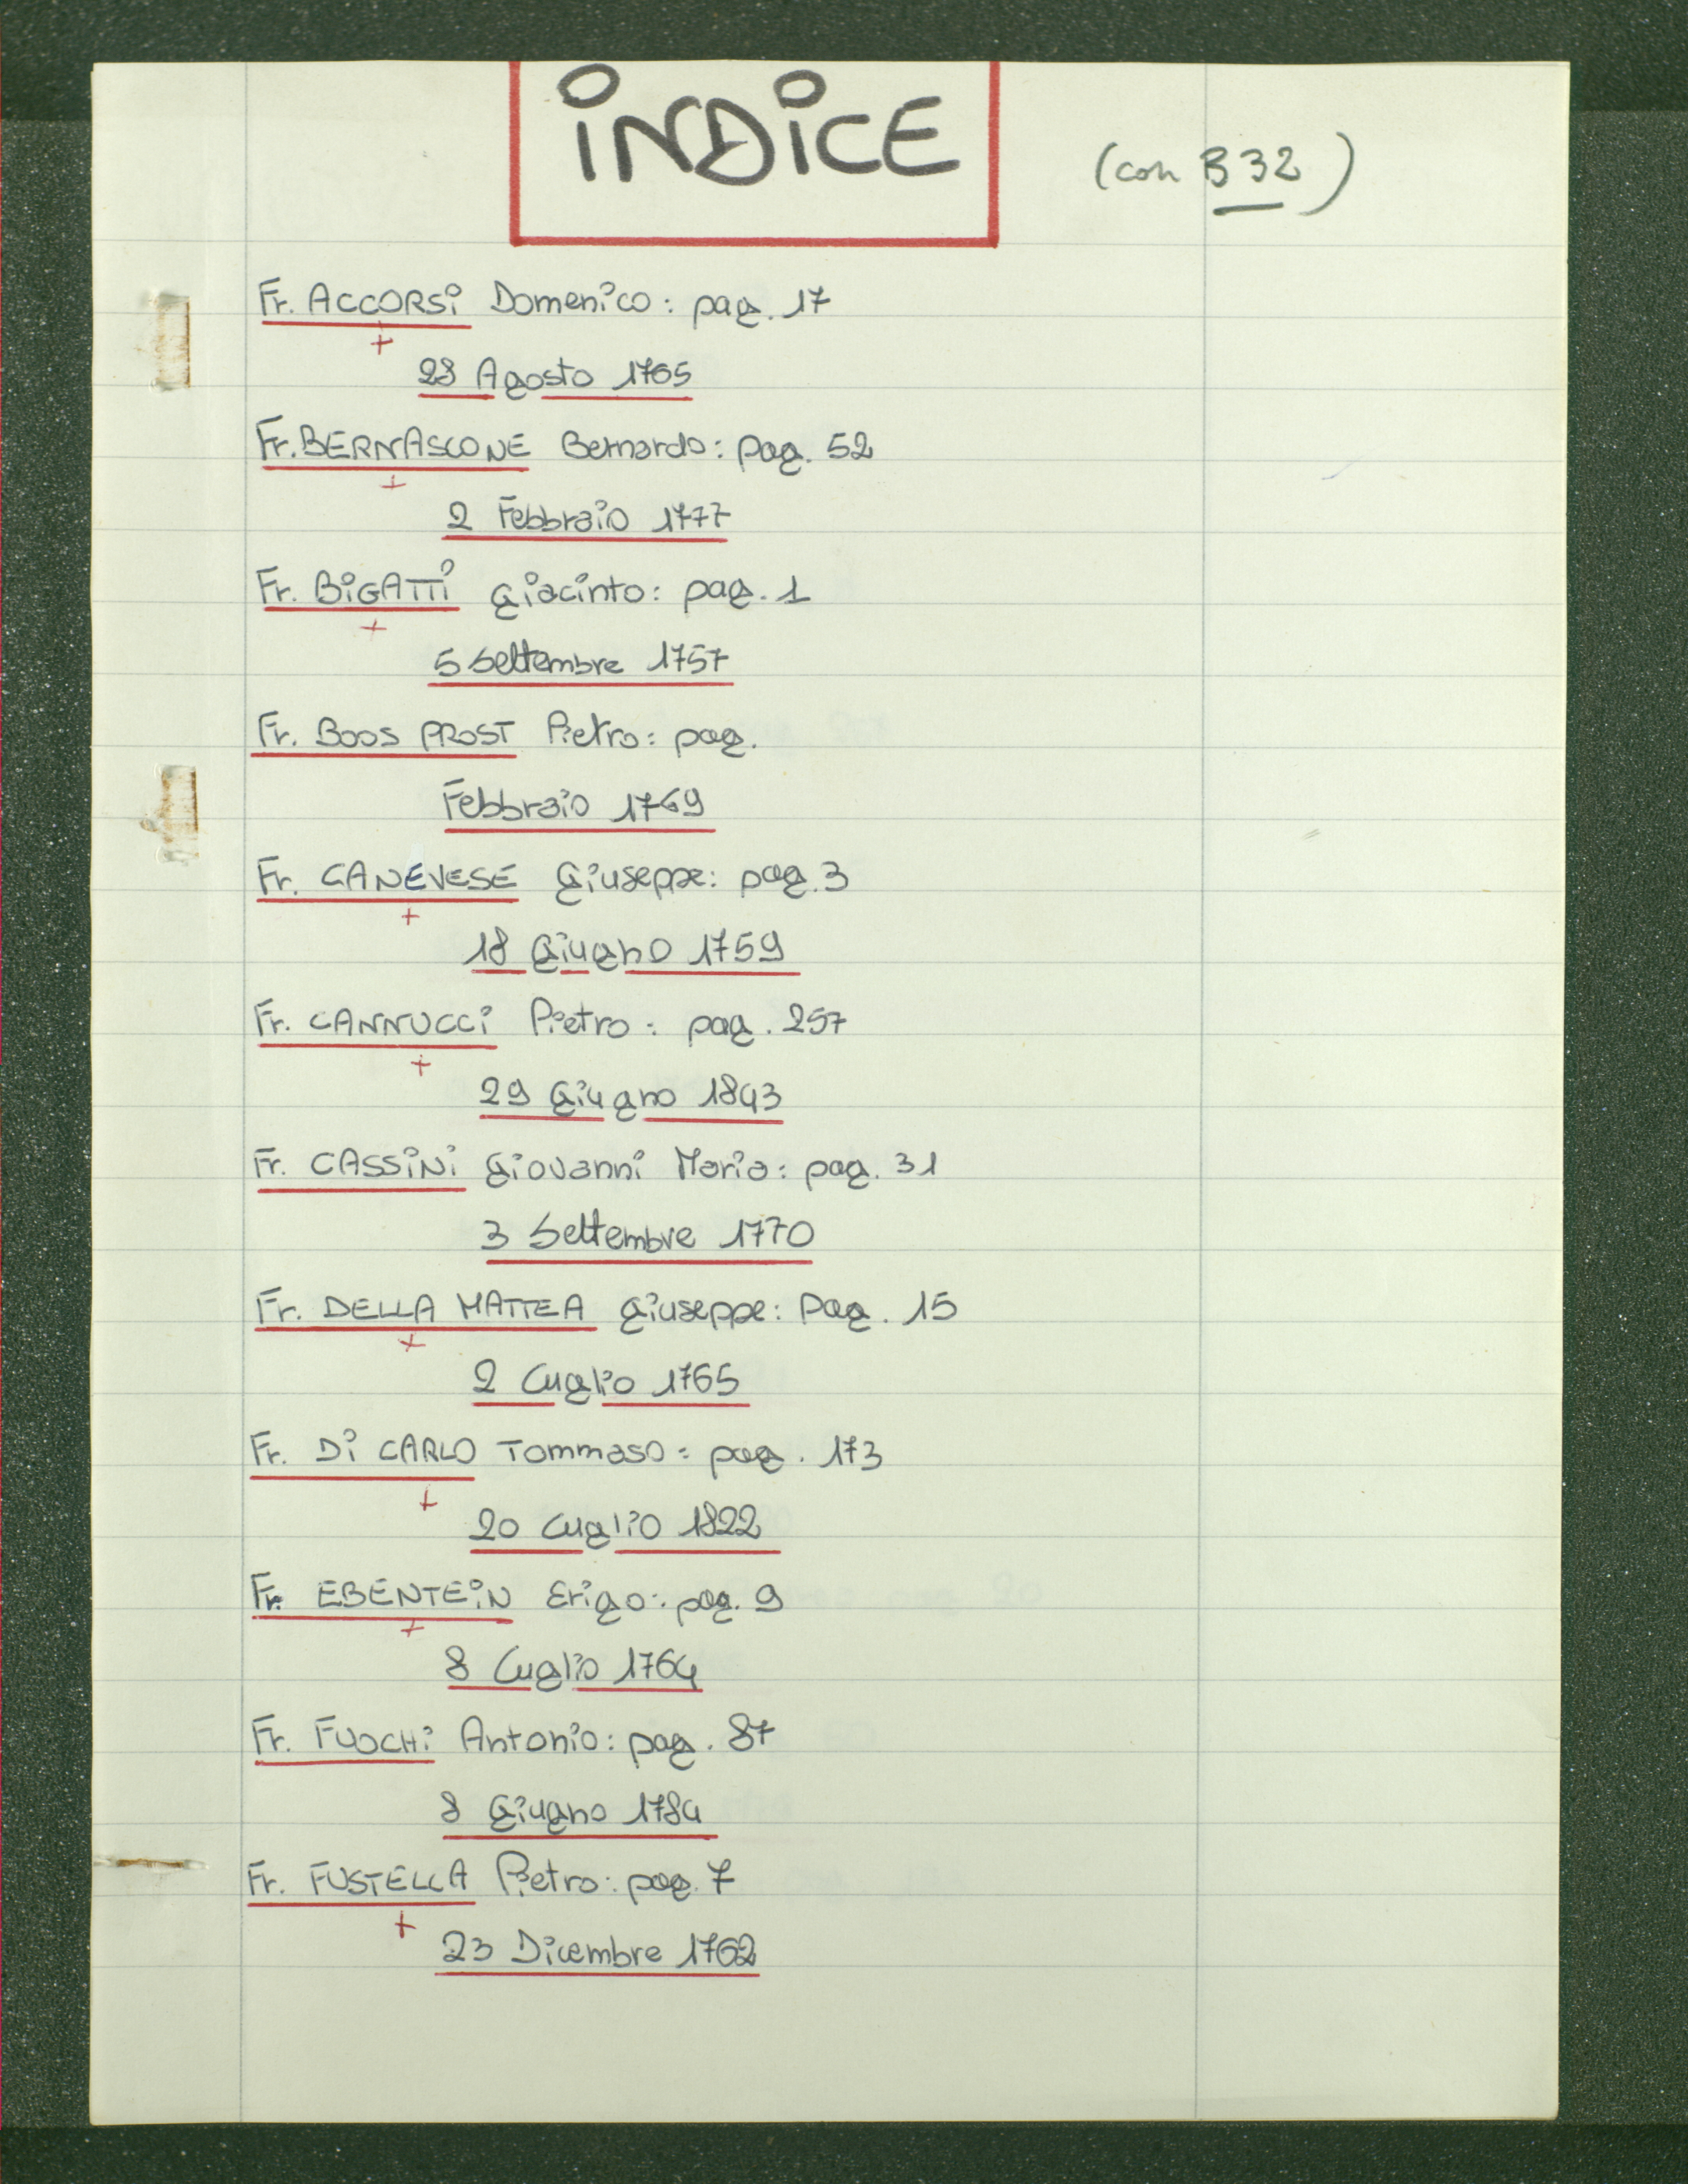 INDICE
(con B 32)
Fr. ACCORSI Domenico: pag. 17
+
28 Agosto 1765
Fr. BERNASCONE Bernardo: pag. 52
+
2 Febbraio 1777
Fr. BIGATTI Giacinto: pag. 1
+
5 Settembre 1757
Fr. BOOS PROST Pietro: pag.
Febbraio 1769
Fr. CANEVESE Giuseppe: pag. 3
+
18 Giugno 1759
Fr. CANNUCCI Pietro: pag. 257
+
29 Giugno 1843
Fr. CASSINI Giovanni Maria: pag. 31
3 Settembre 1770
Fr. DELLA MATTEA Giuseppe: Pag. 15
+
2 Luglio 1765
Fr. DI CARLO Tommaso: pag. 173
+
20 Luglio 1822
Fr. EBENTEIN Erigo: pag. 9
+
8 Luglio 1764
Fr. FUOCHI Antonio: pag. 87
8 Giugno 1784
Fr. FUSTELLA Pietro: pag. 7
+
23 Dicembre 1762